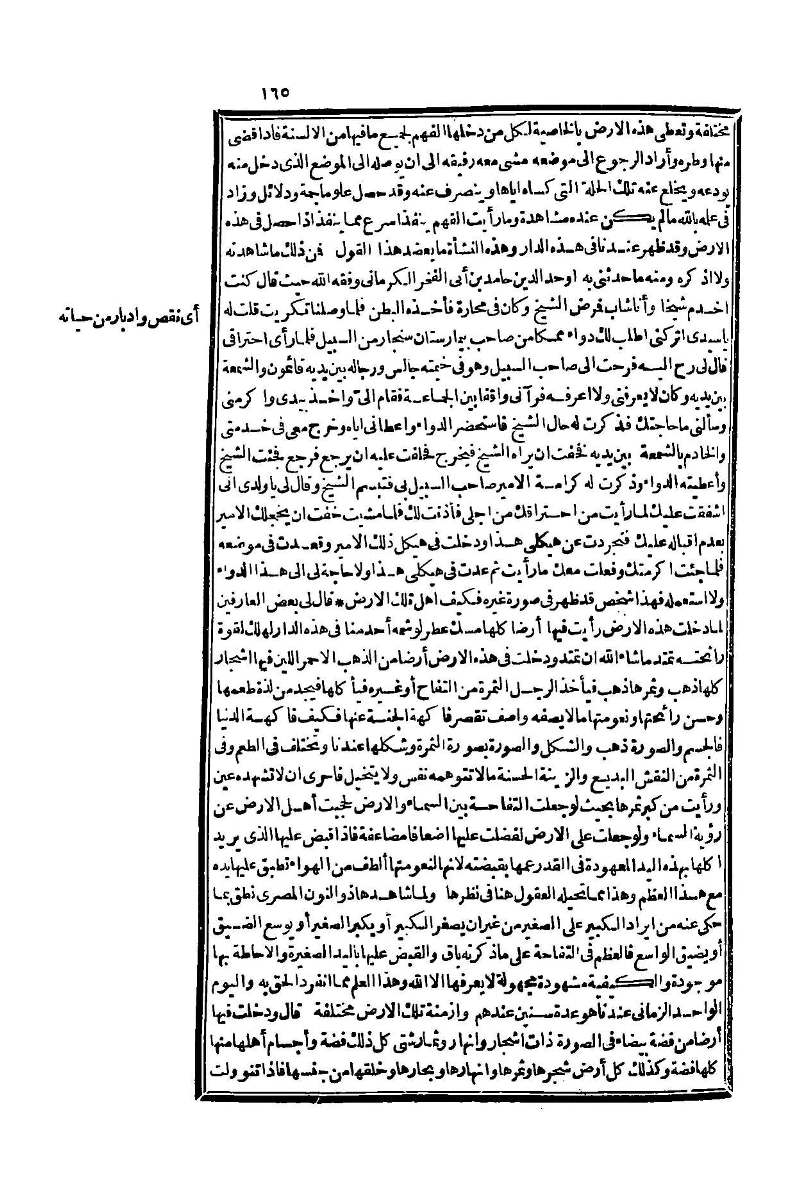 ١٦٥
مختلفة وتعطى هذه الارض بالخاصية لكل من دخلها الفهم لجميع ما فيها من الالسنة فاذا قضى
منها وطره وأراد الرجوع الى موضعه مشى معه رفيقه الى ان يوصله الى الموضع الذى دخل منه
يودعه ويخلع عنه تلك الحلة التى كساه اياها وينصرف عنه وقد حصل علوما جمة ودلائل وزاد
فى علمه بالله مالم يكن عنده مشاهدة وما رأيت الفهم ينفذ اسرع مما ينفذ اذا حصل فى هذه
الارض وقد ظهر عندنا فى هذه الدار وهذه النشأة ما يعضد هذا القول فن ذلك ما شاهدته
ولا اذكره ومنه ما حدثنى به اوحد الدين حامد بن أبى الفخر الكرمانى وفقه الله حيث قال كنت
اخدم شيخا وأنا شاب فرض الشيخ وكان فى محارة فأخذه البطن فلما وصلنا تكريت قلت له
أى نقص وادبار من حياته
ياسيدى اتركنى اطلب لك دواء ممسكا من صاحب بيمارستان سنجار من السبيل فلما رأى احتراقى
قال لى رح اليه فرحت الى صاحب السبيل وهو فى خيمته جالس ورجاله بين يديه قائمون والشمعة
بين يديه وكان لا يعرفنى ولا اعرفه فرآنى واقفا بين الجماعة فقام الىّ واخذ بيدى واكرمنى
وسألنى ما حاجتك فذكرت له حال الشيخ فاستحضر الدواء واعطانى اياه وخرج معى فى خدمتى
والخادم بالشمعة بين يديه فخفت ان يراه الشيخ فيخرج فحلفت عليه ان يرجع فرجع فجئت الشيخ
وأعطيته الدواء وذكرت له كرامة الامير صاحب السبيل لى فتبسم الشيخ وقال لى يا ولدى انى
اشفقت عليك لما رأيت من احتراقك من اجلى فأذنت لك فلما مشيت خفت ان يخجلك الامير
بعدم اقباله عليك فتجردت عن هيكلى هذا ودخلت فى هيكل ذلك الامير وقعدت فى موضعه
فلما جئت اكرمتك وفعلت معك ما رأيت ثم عدت فى هيكلى هذا ولا حاجة لى الى هذا الدواء
ولا استعمله فهذا شخص قد ظهر فى صورة غيره فكيف اهل تلك الارض * قال لى بعض العارفين
لما دخلت هذه الارض رأيت فيها أرضا كلها مسك عطر لو شمه أحد منا فى هذه الدار لهلك لقوة
رائحته تمتد ما شاء الله ان تمتد ودخلت فى هذه الارض أرضا من الذهب الاحمر اللين فيها اشجار
كلها ذهب وثمرها ذهب فيأخذ الرجل الثمرة من التفاح أو غيره فيأكلها فيجد من لذة طعمها
وحسن رائحتها ونعومتها ما لا يصفه واصف تقصر فاكهة الجنة عنها فكيف فاكهة الدنيا
فالجسم والصورة ذهب والشكل والصورة بصورة الثمرة وشكلها عندنا وتختلف فى الطعم وفى
الثمرة من النقش البديع والزينة الحسنة ما لا تتوهمه نفس ولا يتخيل فاحرى ان لا تشهده عين
ورأيت من كبر ثمرها بحيث لو جعلت التفاحة بين السماء والارض لحجبت أهل الارض عن
رؤية السماء ولو جعلت على الارض لفضلت عليها اضعافا مضاعفة فاذا قبض عليها الذى يريد
اكلها بهذه اليد المعهودة فى القدر عمها بقبضته لانها لنعومتها ألطف من الهواء تطبق عليها يده
مع هذا العظم وهذا مما تحيله العقول هنا فى نظرها ولما شاهدها ذو النون المصرى نطق بما
حكى عنه من ايراد الكبير على الصغير من غير ان يصغر الكبير أو يكبر الصغير أو يوسع الضيق
أو يضيق الواسع فالعظم فى التفاحة على ما ذكرته باق والقبض عليها باليد الصغيرة والاحاطة بها
موجودة والكيفية مشهودة مجهولة لا يعرفها الا الله وهذا العلم مما انفرد الحق به واليوم
الواحد الزمانى عندنا هو عدة سنين عندهم وازمنة تلك الارض مختلفة قال ودخلت فيها
أرضا من فضة بيضاء فى الصورة ذات اشجار وانهار وثمار شتى كل ذلك فضة وأجسام أهلها منها
كلها فضة وكذلك كل أرض شجرها وثمرها وانهارها وبحارها وخلقها من جنسها فاذا تنوولت